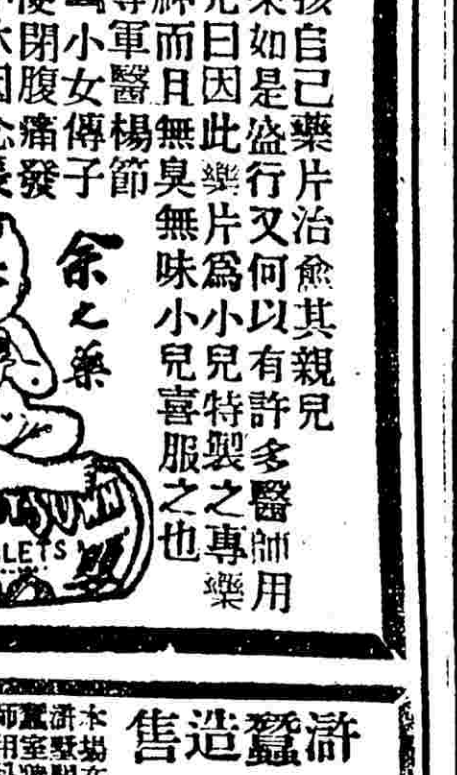 孩自己藥片治愈其親兒
來如是盛行又何以有許多醫師用
兄曰因此藥片爲小兒特製之專藥
而且無臭無味小兒喜服之也
軍醫楊節
小女傳子
閉腹痛發
余之藥
OWN
LETS
滸蠶造售
本場在
滸墅關
蠶室